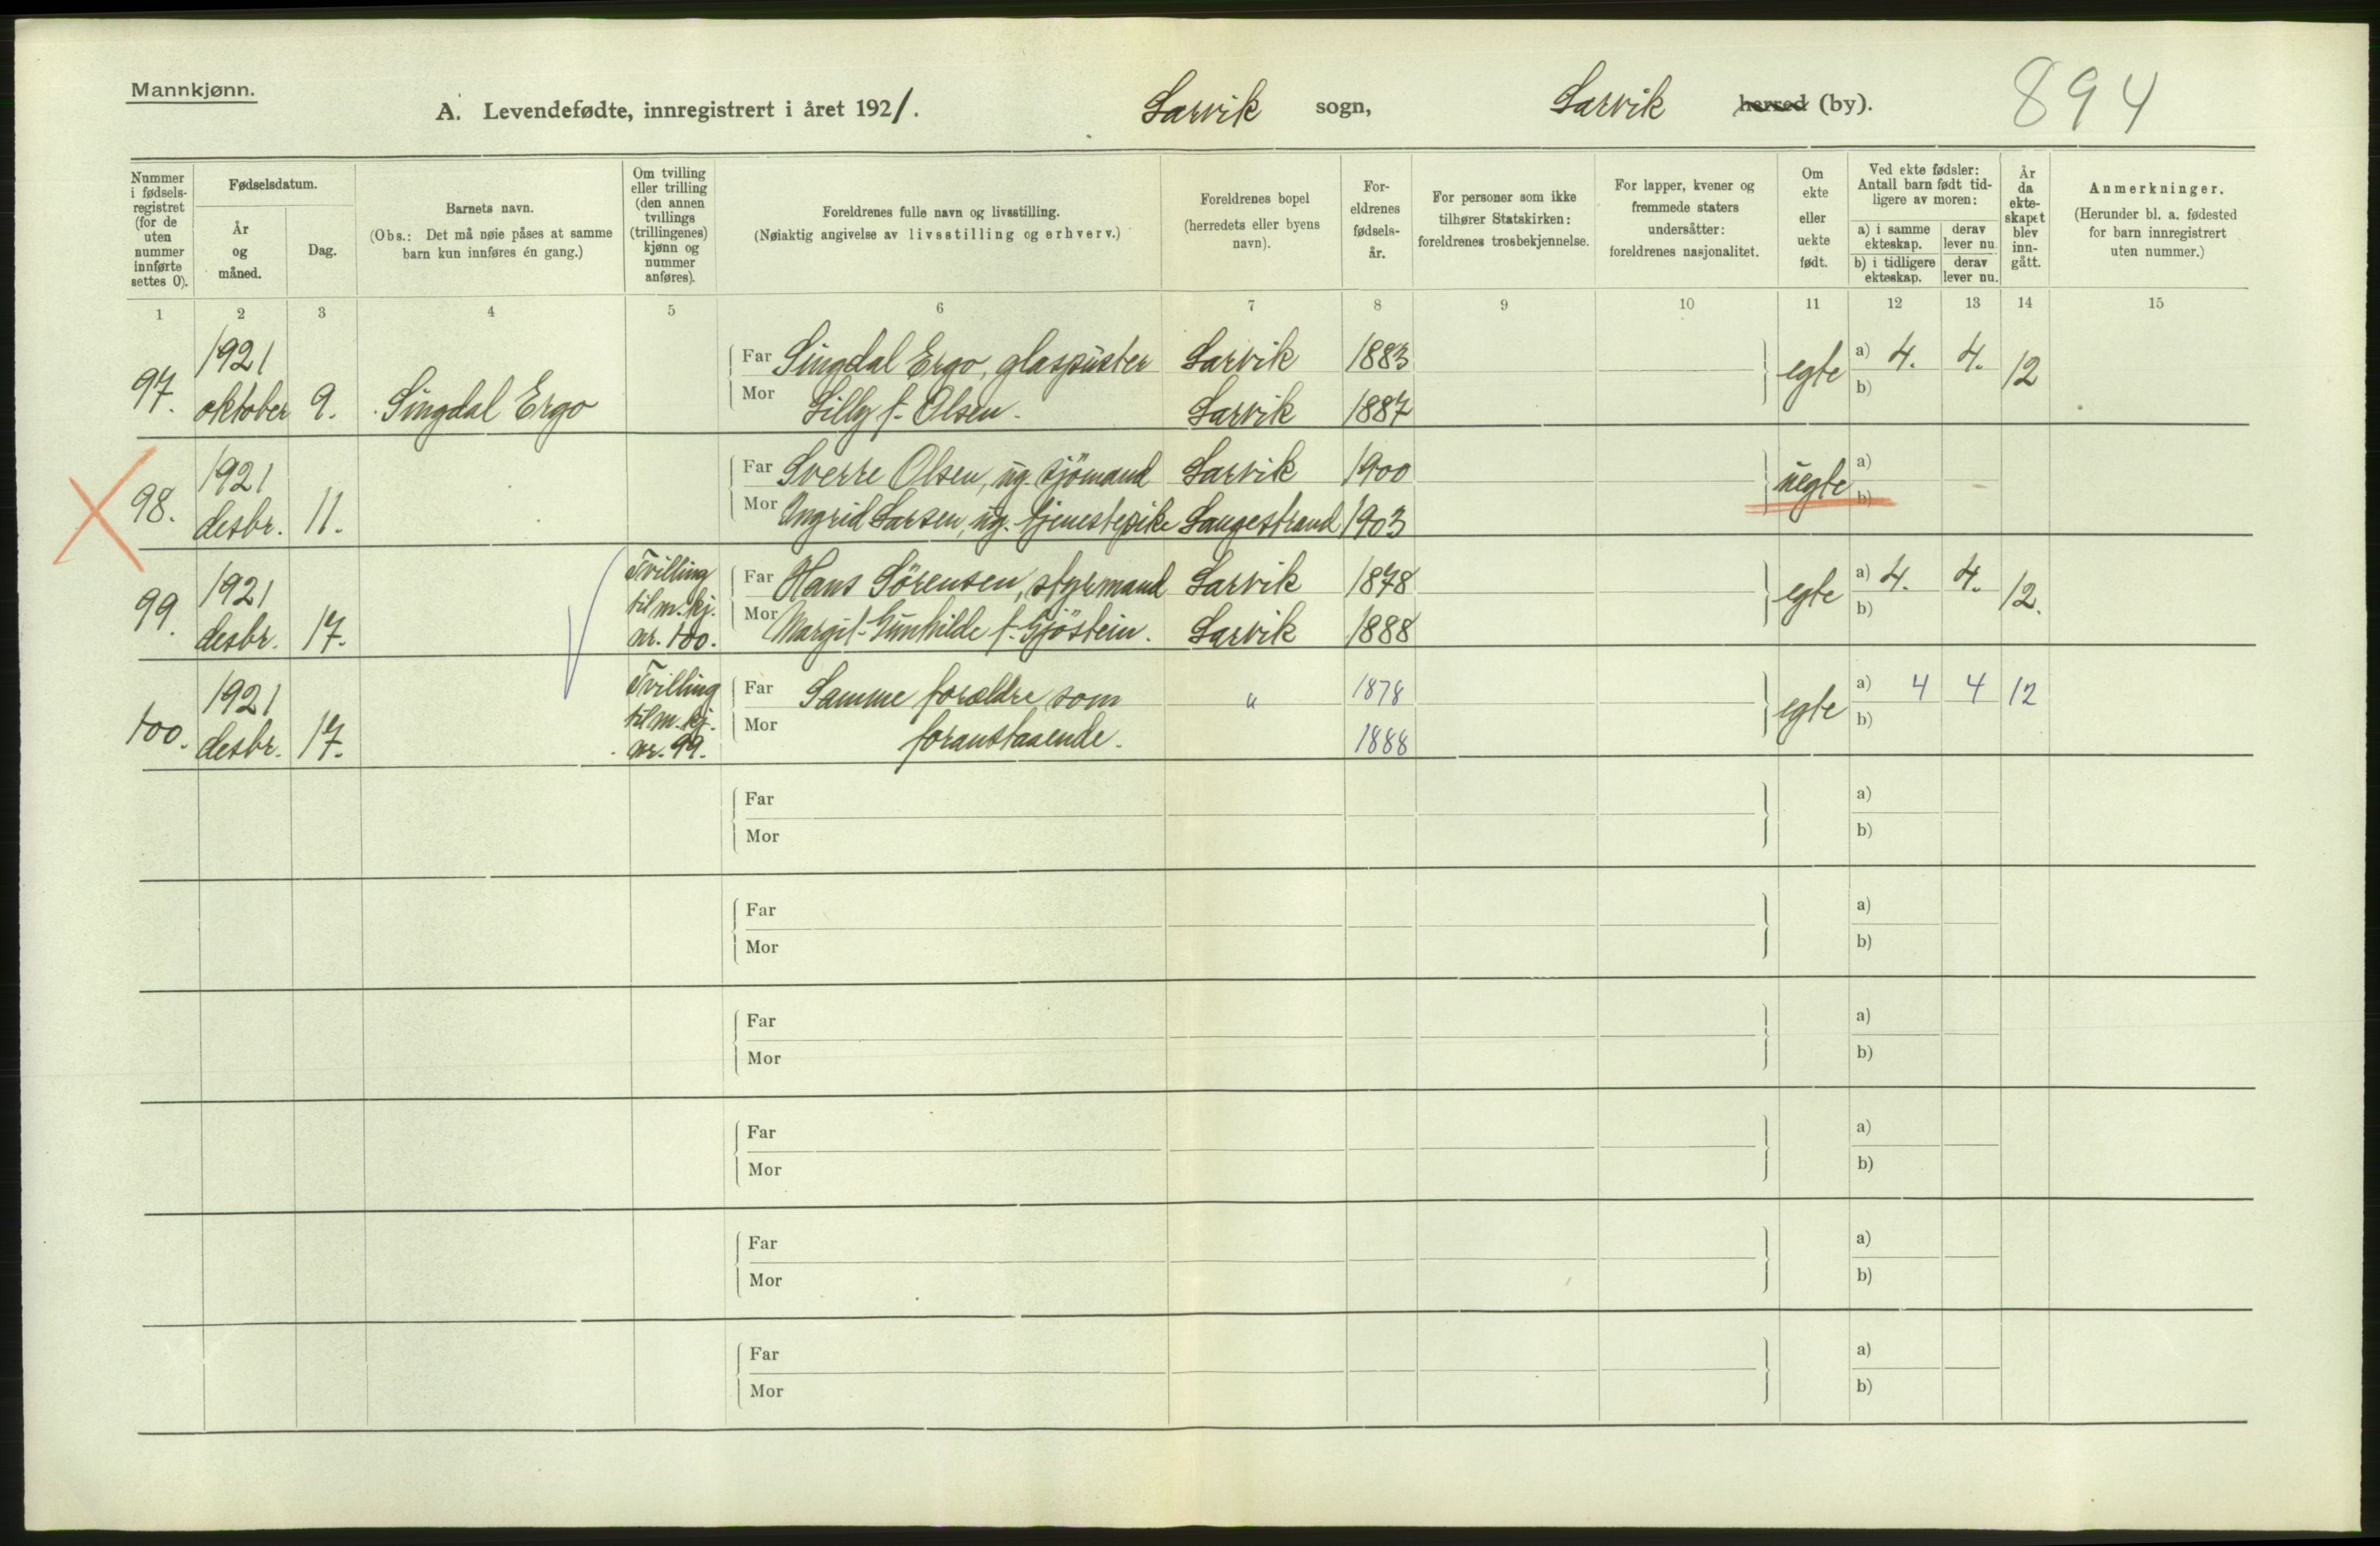 Mannkjønn.
A. Levendefødte, innregistrert i året 1921. Larvik sogn, Larvik herred (by). 894
Nummer i fødsels-registret (for de uten nummer innførte settes 0).
Fødselsdatum.
År og måned.
Dag.
Barnets navn.
(Obs.: Det må nøie påses at samme barn kun innføres én gang.)
Om tvilling eller trilling (den annen tvillings (trillingenes) kjønn og nummer anføres).
Foreldrenes fulle navn og livsstilling.
(Nøiaktig angivelse av livsstilling og erhverv.)
Foreldrenes bopel (herredets eller byens navn).
For-eldrenes fødsels-år.
For personer som ikke tilhører Statskirken: foreldrenes trosbekjennelse.
For lapper, kvener og fremmede staters undersåtter: foreldrenes nasjonalitet.
Om ekte eller uekte født.
Ved ekte fødsler: Antall barn født tid-ligere av moren:
a) i samme ekteskap.
derav lever nu.
b) i tidligere ekteskap.
derav lever nu.
År da ekte-skapet blev inn-gått.
Anmerkninger.
(Herunder bl. a. fødested for barn innregistrert uten nummer.)
1 2 3 4 5 6 7 8 9 10 11 12 13 14 15
97. 1921 oktober 9. Singdal Ergo
Far Singdal Ergo, glaspuster Larvik 1883 egte a) 4. 4. 12
Mor Lilly f. Olsen. Larvik 1887 b)
98. 1921 desbr. 11.
Far Sverre Olsen, ug. sjömand Larvik 1900 uegte a)
Mor Ingrid Larsen, ug. tjenestepike Langestrand 1903 b)
99. 1921 desbr. 17. Tvilling til m. kj. nr. 100.
Far Hans Sörensen, styrmand Larvik 1878 egte a) 4. 4. 12.
Mor Margit Gunhilde f. Gjöstein. Larvik 1888 b)
100. 1921 desbr. 17. Tvilling til m. kj. nr. 99.
Far Samme forældre som " 1878 egte a) 4 4 12
Mor foranstaaende. 1888 b)
Far a)
Mor b)
Far a)
Mor b)
Far a)
Mor b)
Far a)
Mor b)
Far a)
Mor b)
Far a)
Mor b)